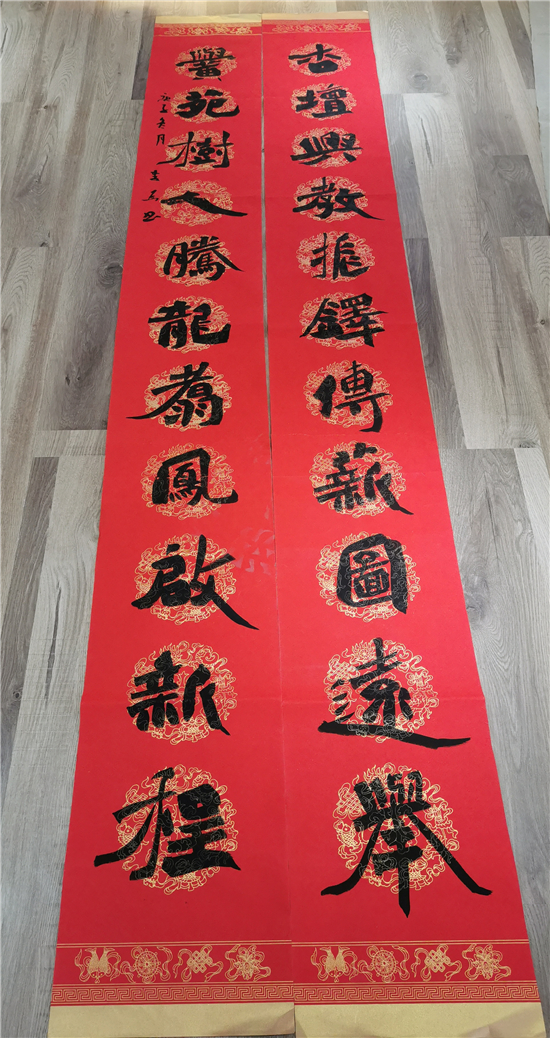 杏壇興教振鐸傳薪圖遠舉
黌苑樹人騰龍翥鳳啟新程